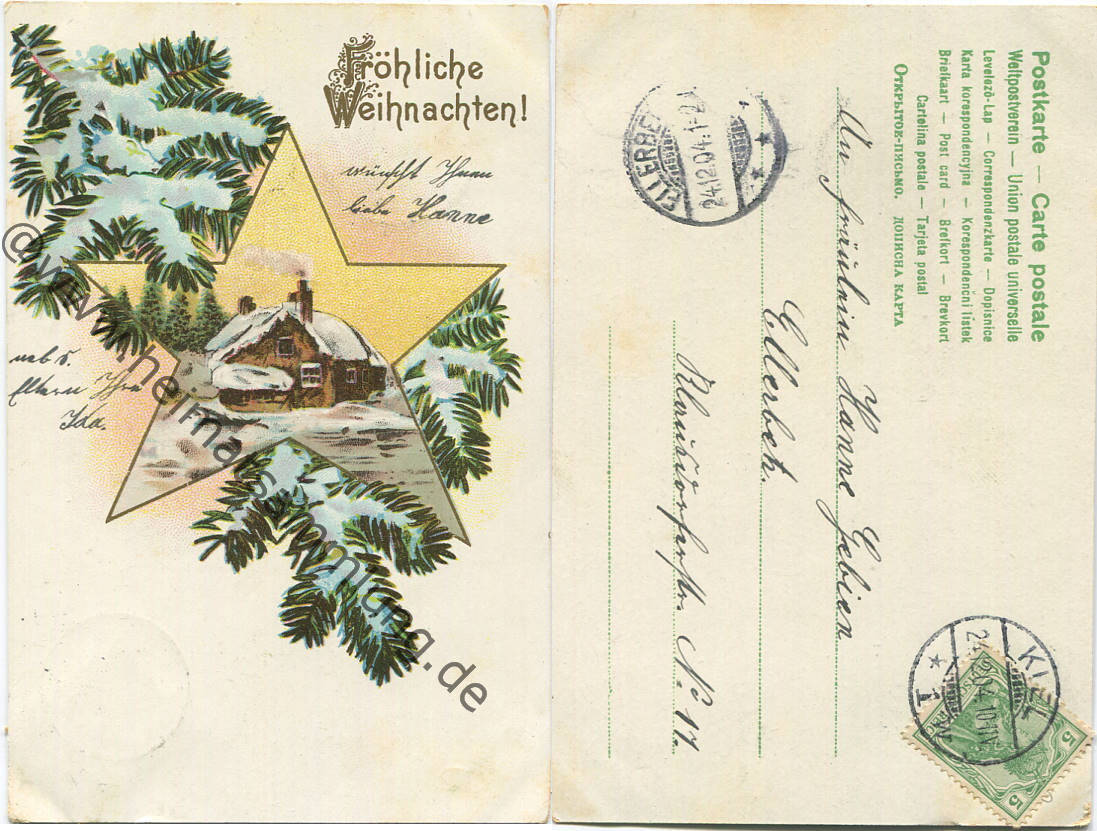 Fröhliche
Weihnachten!
wünscht Ihnen
liebe Hanne
nebst
Eltern Ihre
Ida.
@www.heimatsammlung.de
Postkarte — Carte postale
Weltpostverein — Union postale universelle
Levelezö-Lap — Correspondenzkarte — Dopisnice
Karta korespondencyjna — Korespondenční lístek
Briefkaart — Post card — Brefkort — Brevkort
Cartolina postale — Tarjeta postal
ОТКРЫТОЕ-ПИСЬМО. ДОПИСНА КАРТА
An Fräulein Hanne Gebien
Ellerbek.
Klausdorferstr. No. 17.
ELLERBEK
24.12.04.1-2N
KIEL
1
5
5